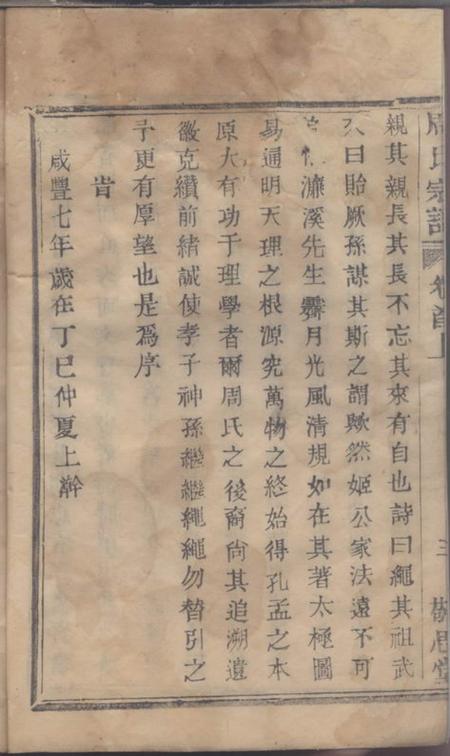 周氏宗譜 卷首上 三 敬思堂
親其親長其長不忘其來有自也詩曰繩其祖武
又曰貽厥孫謀其斯之謂歟然姬公家法遠不可
濂溪先生霽月光風清規如在其著太極圖
易通明天理之根源究萬物之終始得孔孟之本
原大有功于理學者爾周氏之後裔尙其追溯遺
徽克纘前緒誠使孝子神孫繼繼繩繩勿替引之
予更有厚望也是爲序
旹
咸豐七年歲在丁巳仲夏上澣